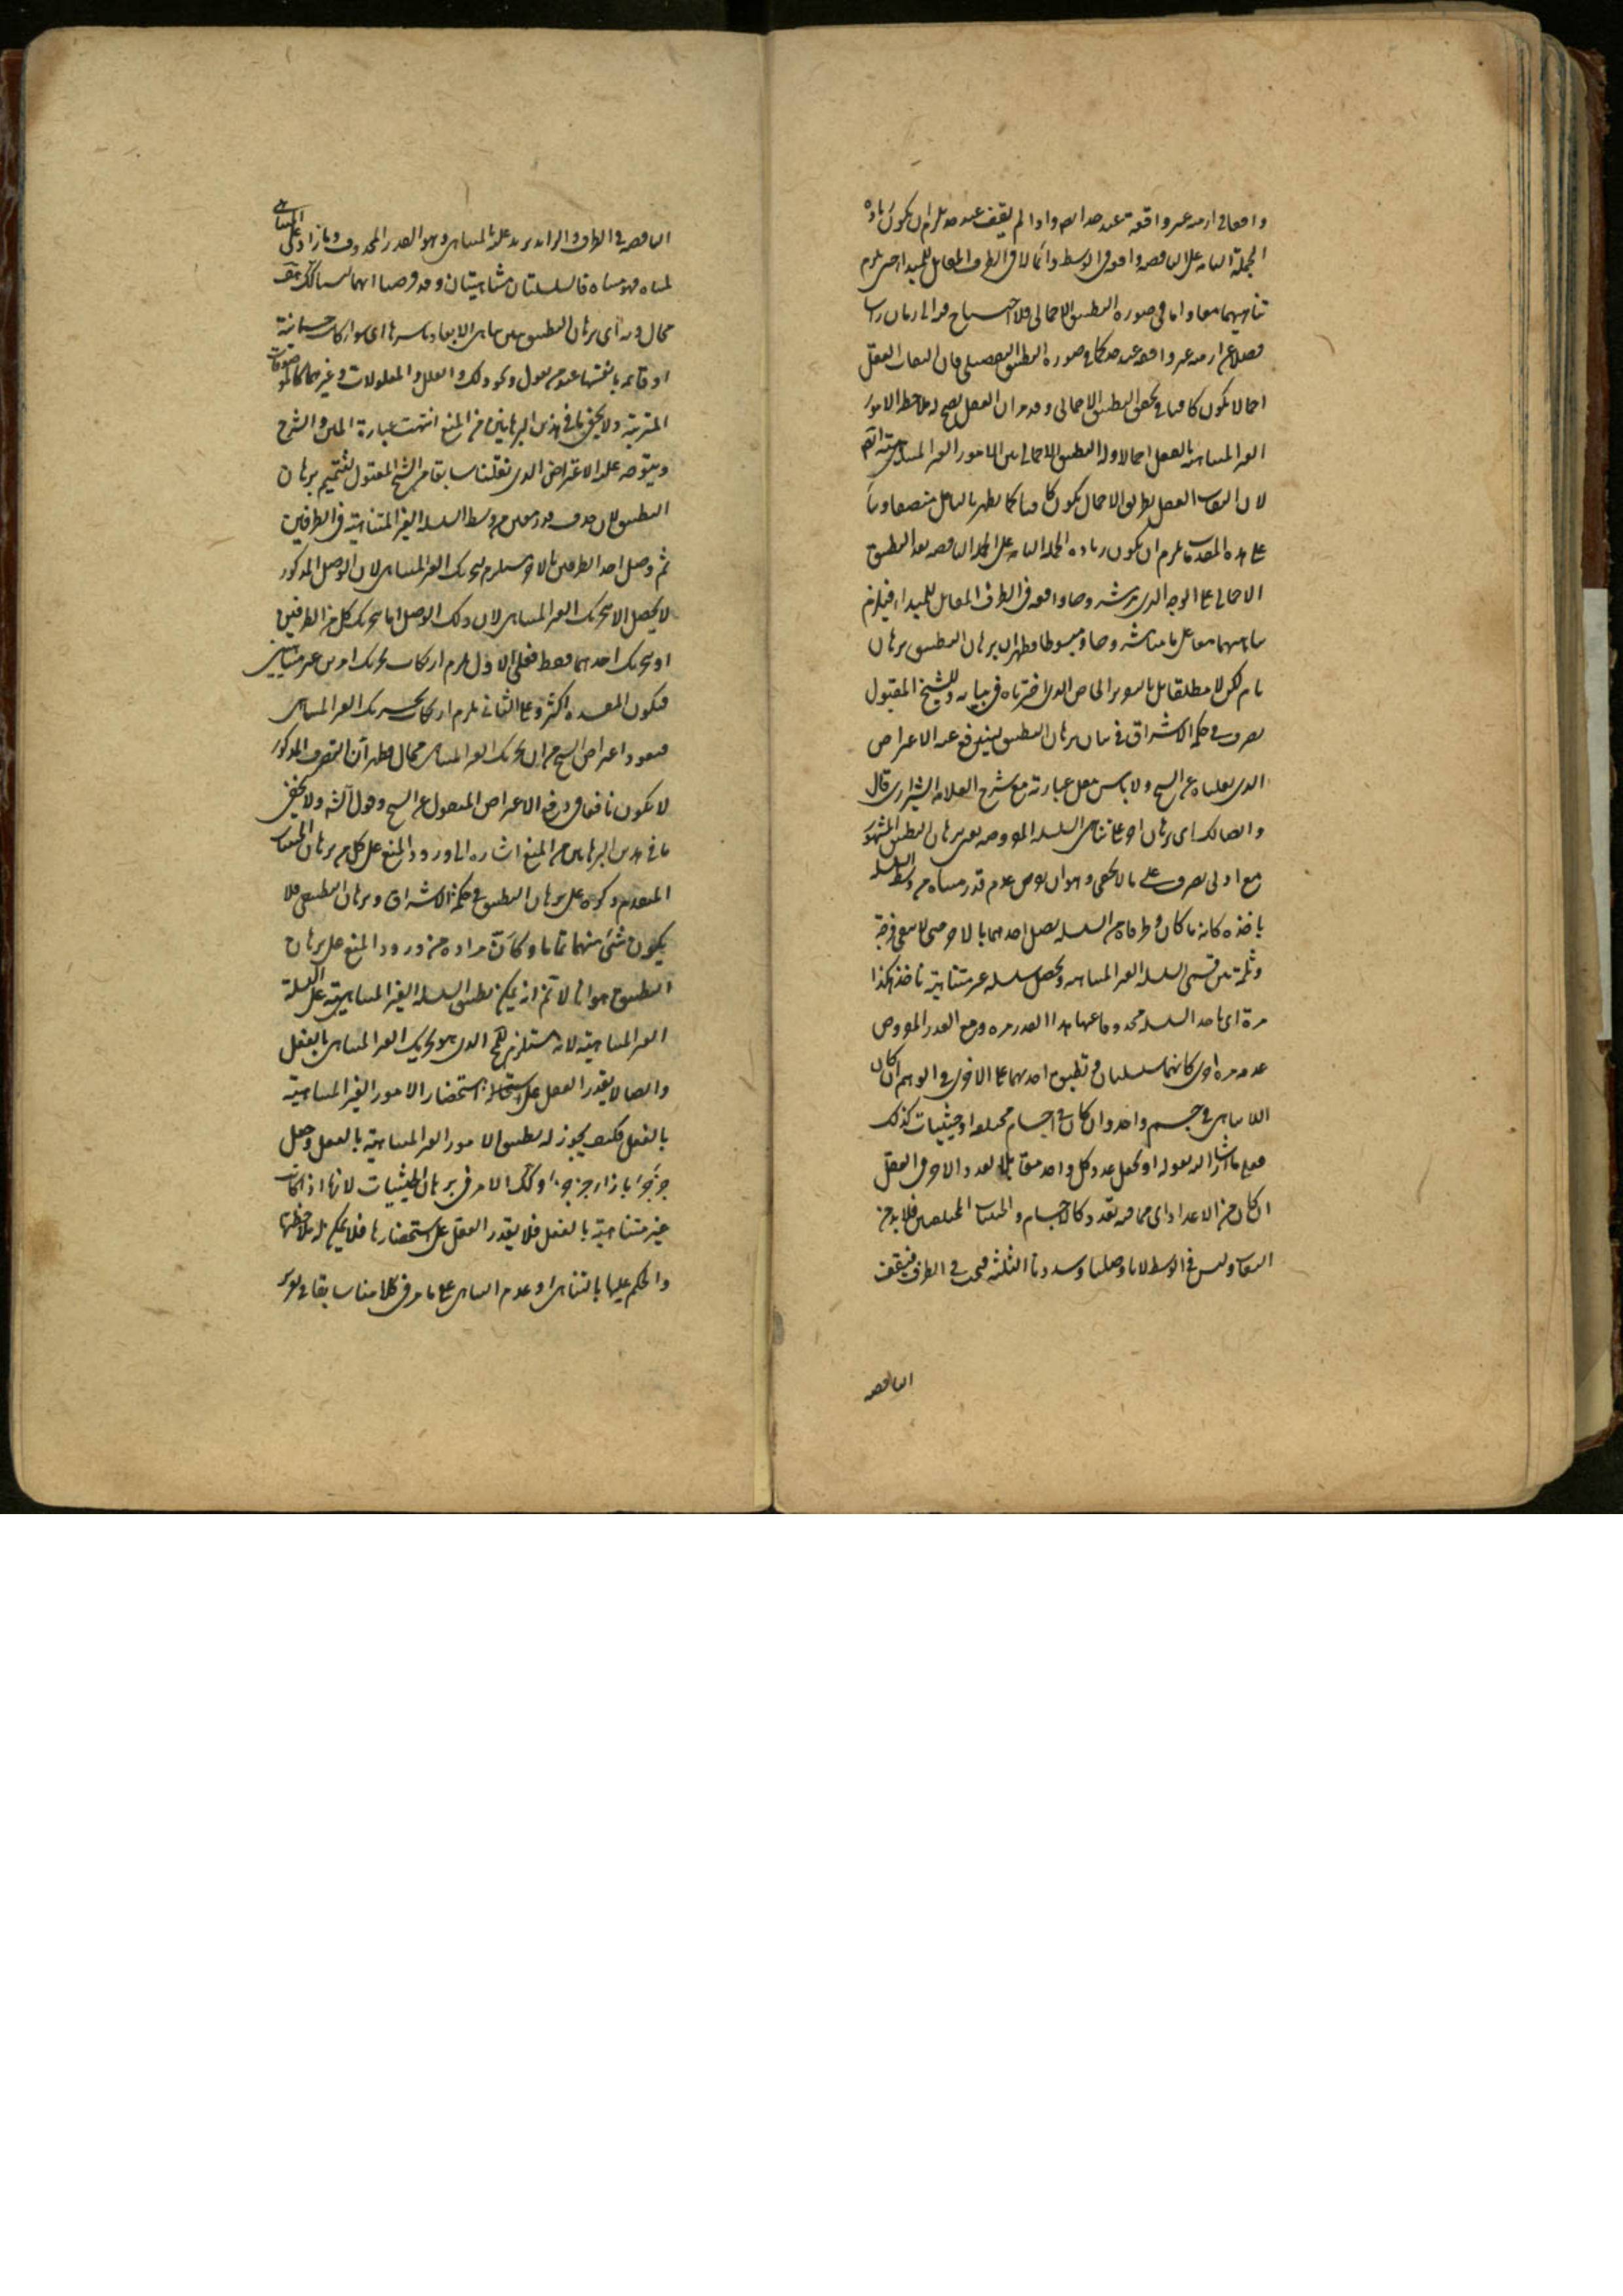 واقعا في ازمنه غير واقعة عند حد
الجملة التامه على الناقصه واقعه في الوسط دائما لا في الطرف المقابل للمبدا حتى يلزم
تناهيهما معا واما في صورة التطبيق الاجمالي فلا احتياج فيه الى زمان
فضلا عن ازمنه غير واقعه عند حد كما في صورة التطبيق التفصيلي فان التفات العقل
اجمالا يكون كافيا في تحقق التطبيق الاجمالي وقد مر ان العقل يصح له ملاحظه الامور
الغير المتناهيه بالفعل اجمالا وله التطبيق الاجمالي بين الامور الغير المتناهيه
لان التفات العقل بطريق الاجمال يكون كافيا كما يظهر بالتامل
على هذه المقدمه يلزم ان يكون زياده الجمله التامه على الجمله الناقصه بعد التطبيق
الاجمالي على الوجه الذي مر مشروحا واقعه في الطرف المقابل للمبداء فيلزم
تناهيهما معا على ما بيناه مشروحا ومبسوطا فظهر ان برهان التطبيق برهان
تام لكن لا مطلقا بل بالتقرير الخاص الذي اخترناه في بيانه وللشيخ المقتول
تصرف في حكمة الاشراق في بيان برهان التطبيق ليندفع عنه الاعتراض
الذي نقلناه عن الشيخ ولا باس بنقل عبارته مع شرح العلامه الشيرازي قال
وايضا لك اي برهان اخر على تناهي السلسله الموصوفه يعني برهان التطبيق المشهور
مع ادنى تصرف على ما لا يخفى وهو ان يفرض عدم قدر متناه من وسط السلسله
ياخذه كانه ما كان وطرفاه من السلسله يصل احدهما بالاخر حتى لا يبقى فرجة
وثلمة بين قسمي السلسله الغير المتناهيه ويحصل سلسله غير متناهية تاخذ هكذا
مرة اي ناخذ السلسله محذوفا عنها هذا القدر مره ومع القدر المفروض
عدمه مرة اخرى كانهما سلسلتان وتطبيق احديهما على الاخرى في الوهم ان كان
اللاتناهي في جسم واحد وان كان في اجسام مختلفه او حيثيات كذلك
فعلى ما اشار اليه بقوله او يجعل عدد كل واحد مقابلا لعدد الاخر في العقل
ان كان من الاعداد اي مما فيه تعدد كالاجسام والحيثيات المختلفين فلا بد من
التفاوت وليس في الوسط لانا وصلنا وسددنا الثلمه فيجب في الطرف فيقف
الناقصه
الناقصه في الطرف والزائد يزيد عليه بالمتناهي وهو القدر المحذوف وما زاد على المتناهي
بمتناه فهو متناه فالسلسلتان متناهيتان وقد فرضنا انهما ليستا كذلك هف
محال وبه اي برهان التطبيق يتبين تناهي الابعاد باسرها اي سواء كانت جسمانية
او قائمه بانفسها عند من يقول به ونحو ذلك والعلل والمعلولات وغيرهما كالموصوفات
المترتبة ولا يخفى ما في هذين البرهانين من المنع انتهت عبارة المتن والشرح
ويتوجه عليه الاعتراض الذي نقلنا سابقا من الشيخ المقتول لتتميم برهان
التطبيق بان حذف قدر معين من وسط السلسله الغير المتناهية في الطرفين
ثم وصل احد الطرفين بالاخر يستلزم تحريك الغير المتناهي لان الوصل المذكور
لا يحصل الا بتحريك الغير المتناهي لان ذلك الوصل اما بتحريك كل من الطرفين
او بتحريك احدهما فقط فعلى الاول يلزم ارتكاب تحريك امرين غير متناهيين
فيكون المفسده اكثر وعلى الثاني يلزم ارتكاب تحريك الغير المتناهي
فيعود اعتراض الشيخ من ان تحريك الغير المتناهي محال فظهر ان التصرف المذكور
لا يكون نافعا في دفع الاعتراض المنقول عن الشيخ وقول الشه ولا يخفى
ما في هذين البرهانين من المنع اشاره الى ورود المنع على كل من برهان الحيثيات
المتقدم ذكره على برهان التطبيق في حكمة الاشراق وبرهان التطبيق فلا
يكون شئ منهما تماما وكان مراده من ورود المنع على برهان
التطبيق هو انا لا نم انه يمكن تطبيق السلسله الغير المتناهية على السلسلة
الغير المتناهية لانه مستلزم للمح الذي هو تحريك الغير المتناهي بالفعل
وايضا لا يقدر العقل على استحضار الامور الغير المتناهية
بالفعل فكيف يجوز له تطبيق الامور الغير المتناهية بالفعل وجعل
جزء جزء بازاء جزء جزء وكذلك الامر في برهان الحيثيات لانها اذا كانت
غير متناهية بالفعل فلا يقدر العقل على استحضارها فلا يمكن له ملاحظتها
والحكم عليها بالتناهي او عدم التناهي على ما مر في كلامنا سابقا في